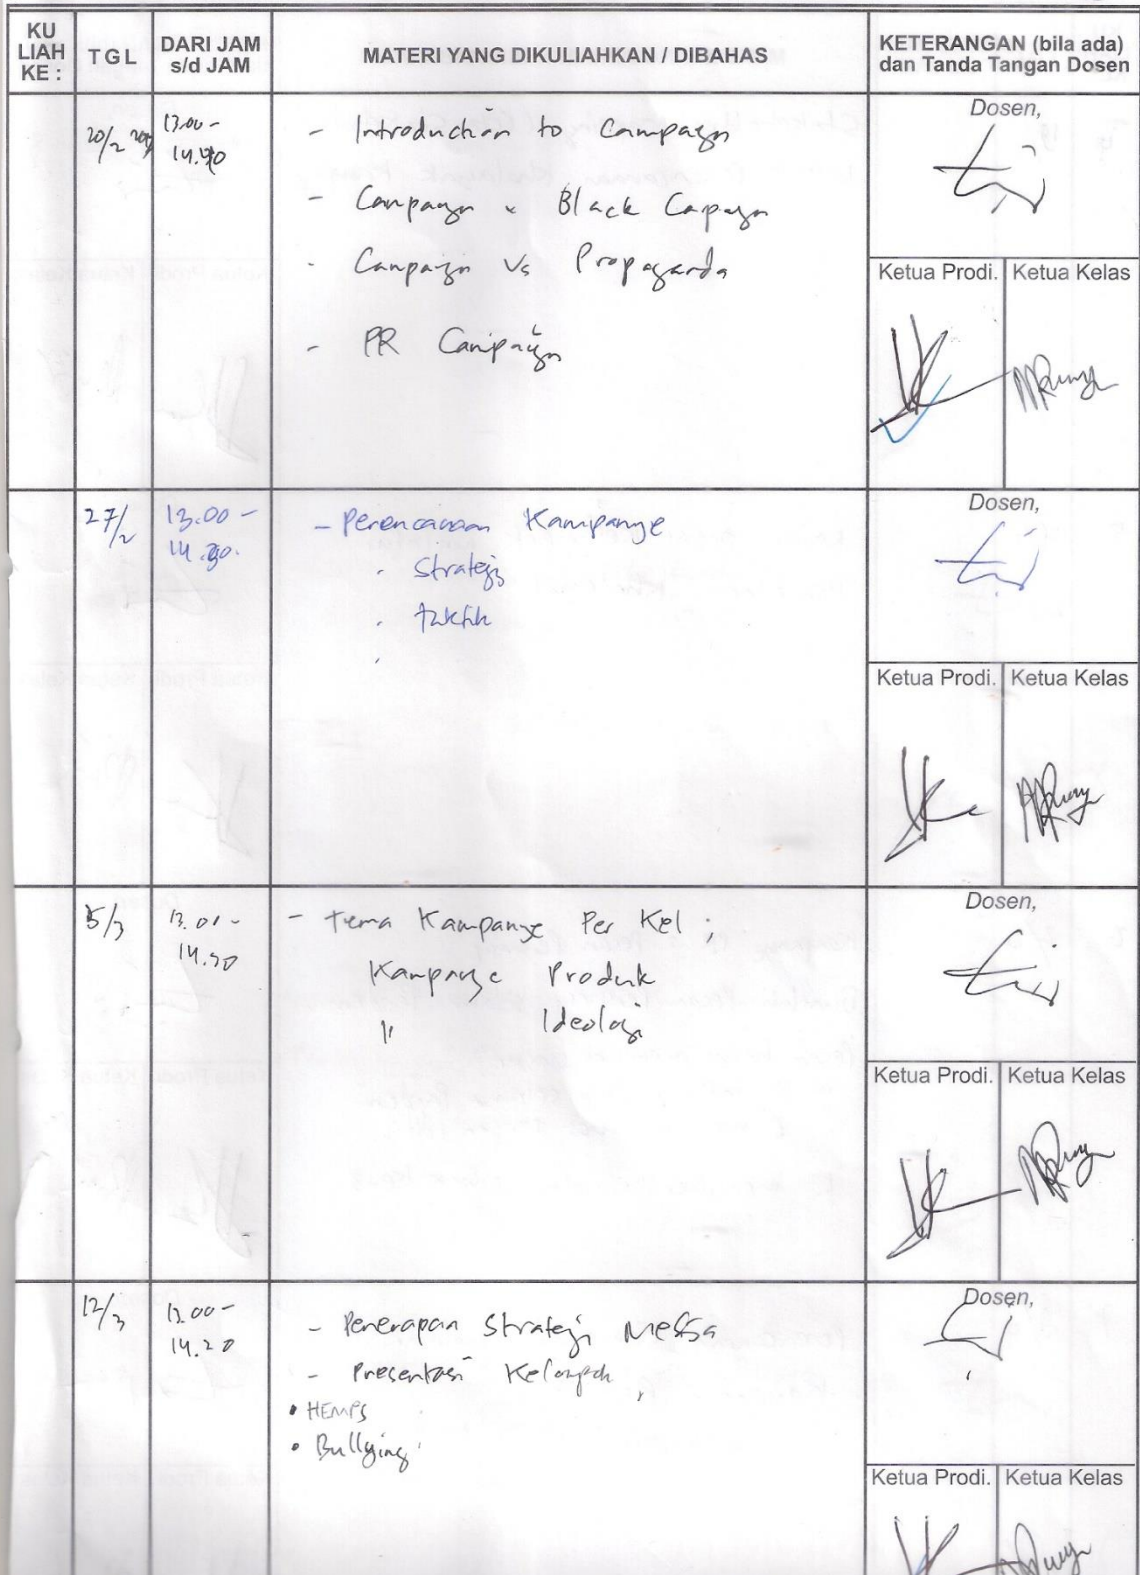 KU
LIAH
KE :
T G L
DARI JAM
s/d JAM
MATERI YANG DIKULIAHKAN / DIBAHAS
KETERANGAN (bila ada)
dan Tanda Tangan Dosen
20/2
13.00 -
- Introduction to Campaign
Dosen,
- Campaign Black Campaign
- Campaign Vs Propaganda
Ketua Prodi. Ketua Kelas
- PR Campaign
27/2
13.00 -
- Perencanaan Kampanye
Dosen,
. Strategi
. taktik
Ketua Prodi. Ketua Kelas
5/3
- tema Kampanye Per Kel ;
Dosen,
Kampanye Produk
" Ideologi
Ketua Prodi. Ketua Kelas
12/3
13.00 -
14.20
- Penerapan Strategi
Dosen,
- Presentasi Kelompok
• HEMPS
• Bullying
Ketua Prodi. Ketua Kelas